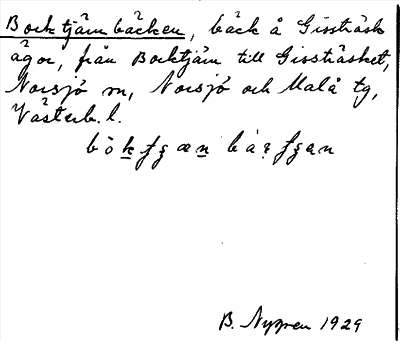 Bocktjärnbäcken, bäck å Gissträsk
ägor, från Bocktjärn till Gissträsket,
Norsjö sn, Norsjö och Malå tg,
Västerb. l.
B. Nygren 1929